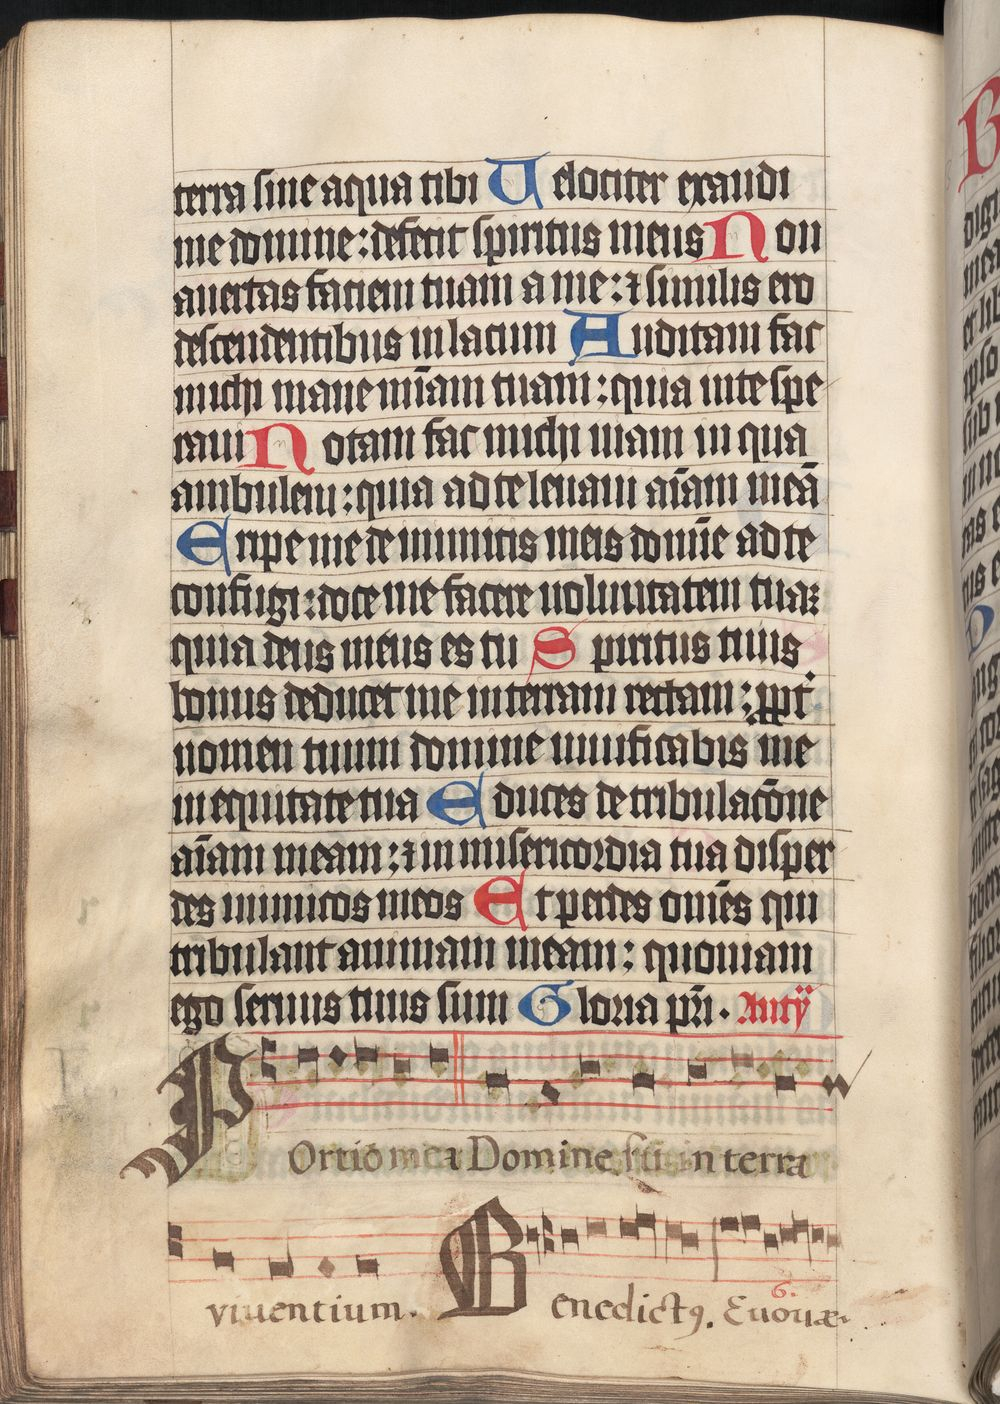 terra sine aqua tibi Velociter exaudi
me domine: defecit spiritus meus Non
auertas faciem tuam a me: ⁊ similis ero
descendentibus in lacum Auditam fac
michi mane mīam tuam: quia in te spe
raui Notam fac michi uiam in qua
ambulem: quia ad te leuaui aīam meā
Eripe me de inimicis meis domīe ad te
confugi: doce me facere uoluntatem tuaꝫ
quia deus meus es tu Spiritus tuus
bonus deducet me in terram rectam: ꝓpt
nomen tuum domine uiuificabis me
in equitate tua Educes de tribulacōne
aīam meam: ⁊ in misericordia tua disper
des inimicos meos Et perdes omēs qui
tribulant animam meam: quoniam
ego seruus tuus sum Gloria pr̄i. Anty
POrtio mea Domine sit in terra
6.
viventium. Benedictꝰ. Euouae.